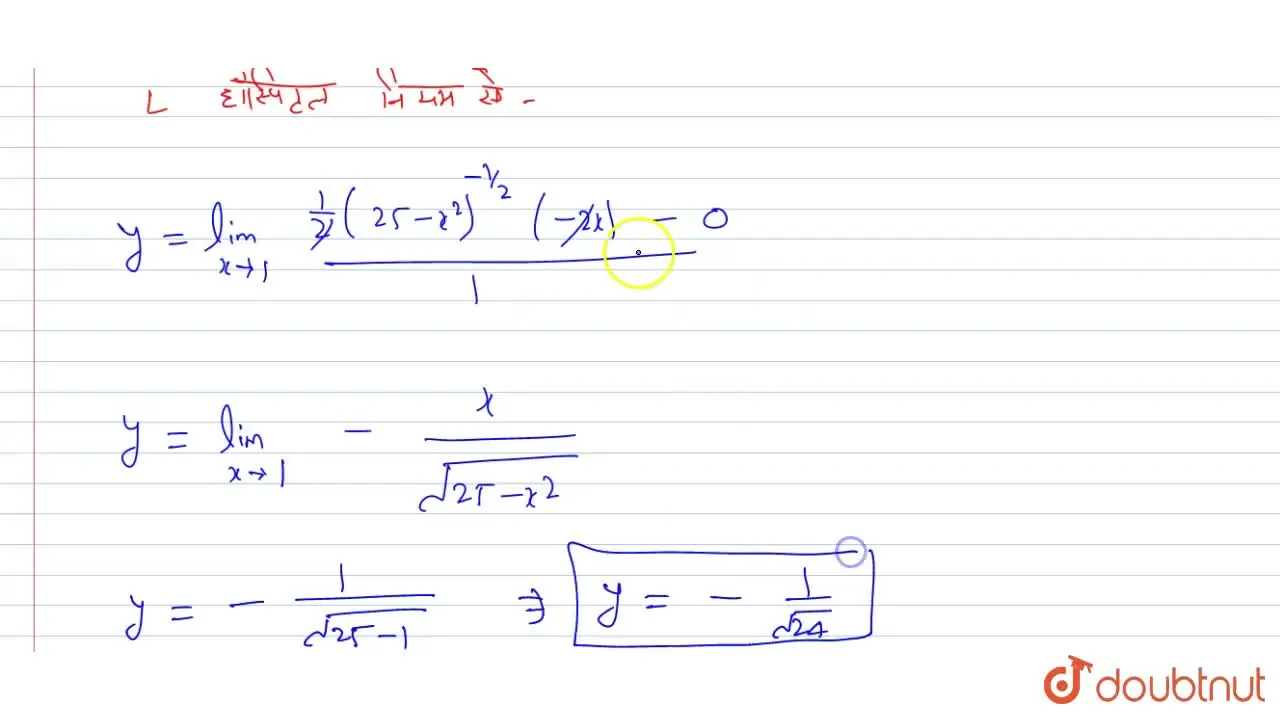 L हॉस्पिटल नियम से -
y = lim x→1 1/2 (25-x²)^-1/2 (-2x) - 0 / 1
y = lim x→1 - x / √25-x²
y = - 1 / √25-1 ⇒ y = - 1 / √24
doubtnut